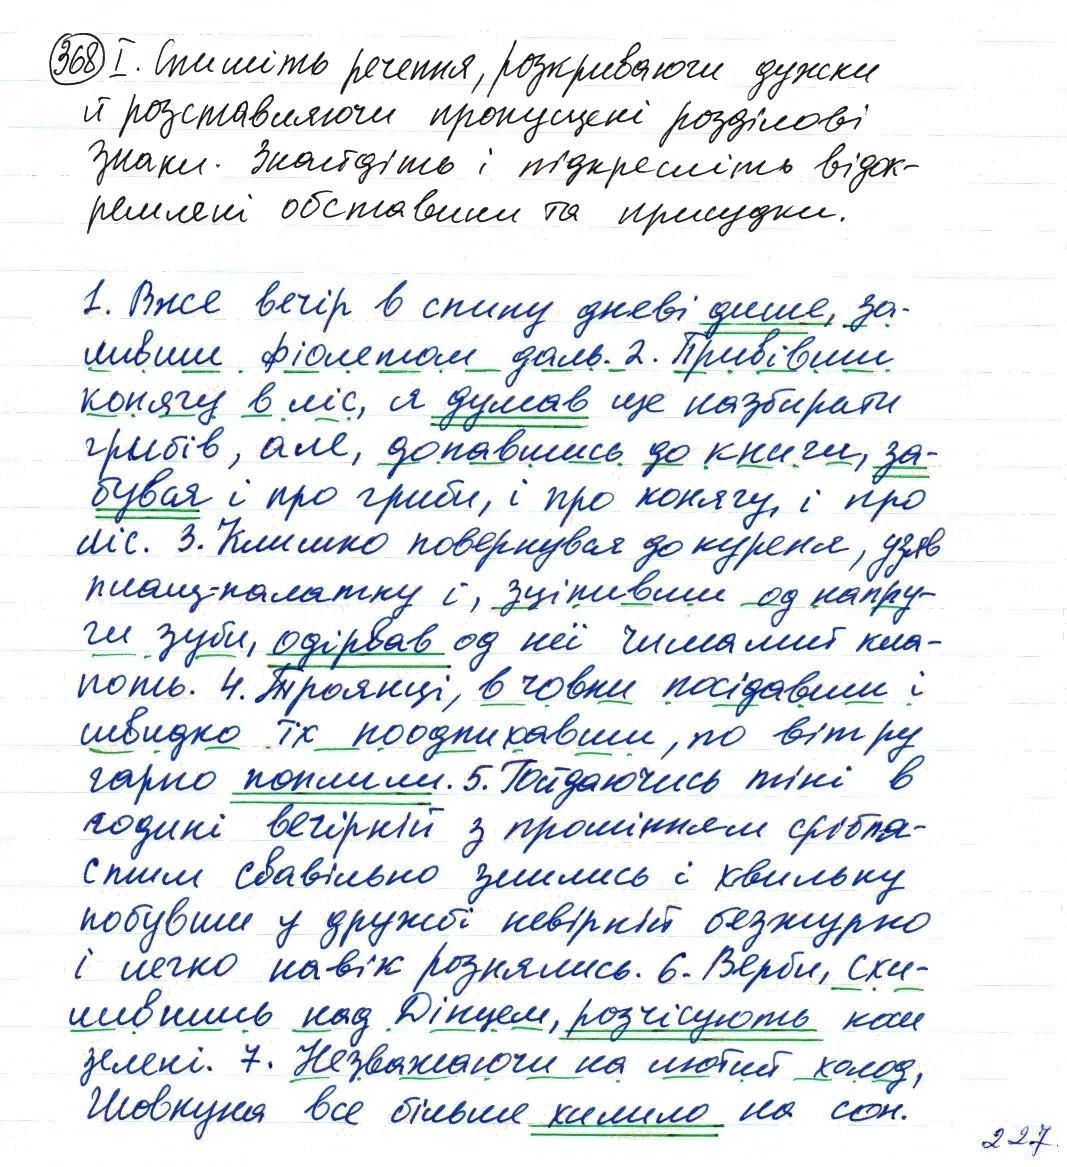 368 I. Спишіть речення, розкриваючи дужки
й розставляючи пропущені розділові
знаки. Знайдіть і підкресліть відок-
ремлені обставини та присудки.
1. Вже вечір в спину дневі дише, за-
ливши фіолетом даль. 2. Привівши
конягу в ліс, я думав ще назбирати
грибів, але, допавшись до книги, за-
бувся і про гриби, і про конягу, і про
ліс. 3. Климко повернувся до куреня, узяв
плащ-палатку і, зціпивши од напру-
ги зуби, одірвав од неї чималий кла-
поть. 4. Троянці, в човни посідавши і
швидко їх поодпихавши, по вітру
гарно поплили. 5. Гойдаючись тіні в
годині вечірній з промінням сріблa-
стим свавільно злились і хвильку
побувши у дружбі невірній безжурно
і легко навік рознялись. 6. Верби, схи-
лившись над Дінцем, розчісують коси
зелені. 7. Незважаючи на лютий холод,
Шовкуна все більше хилило на сон.
227.